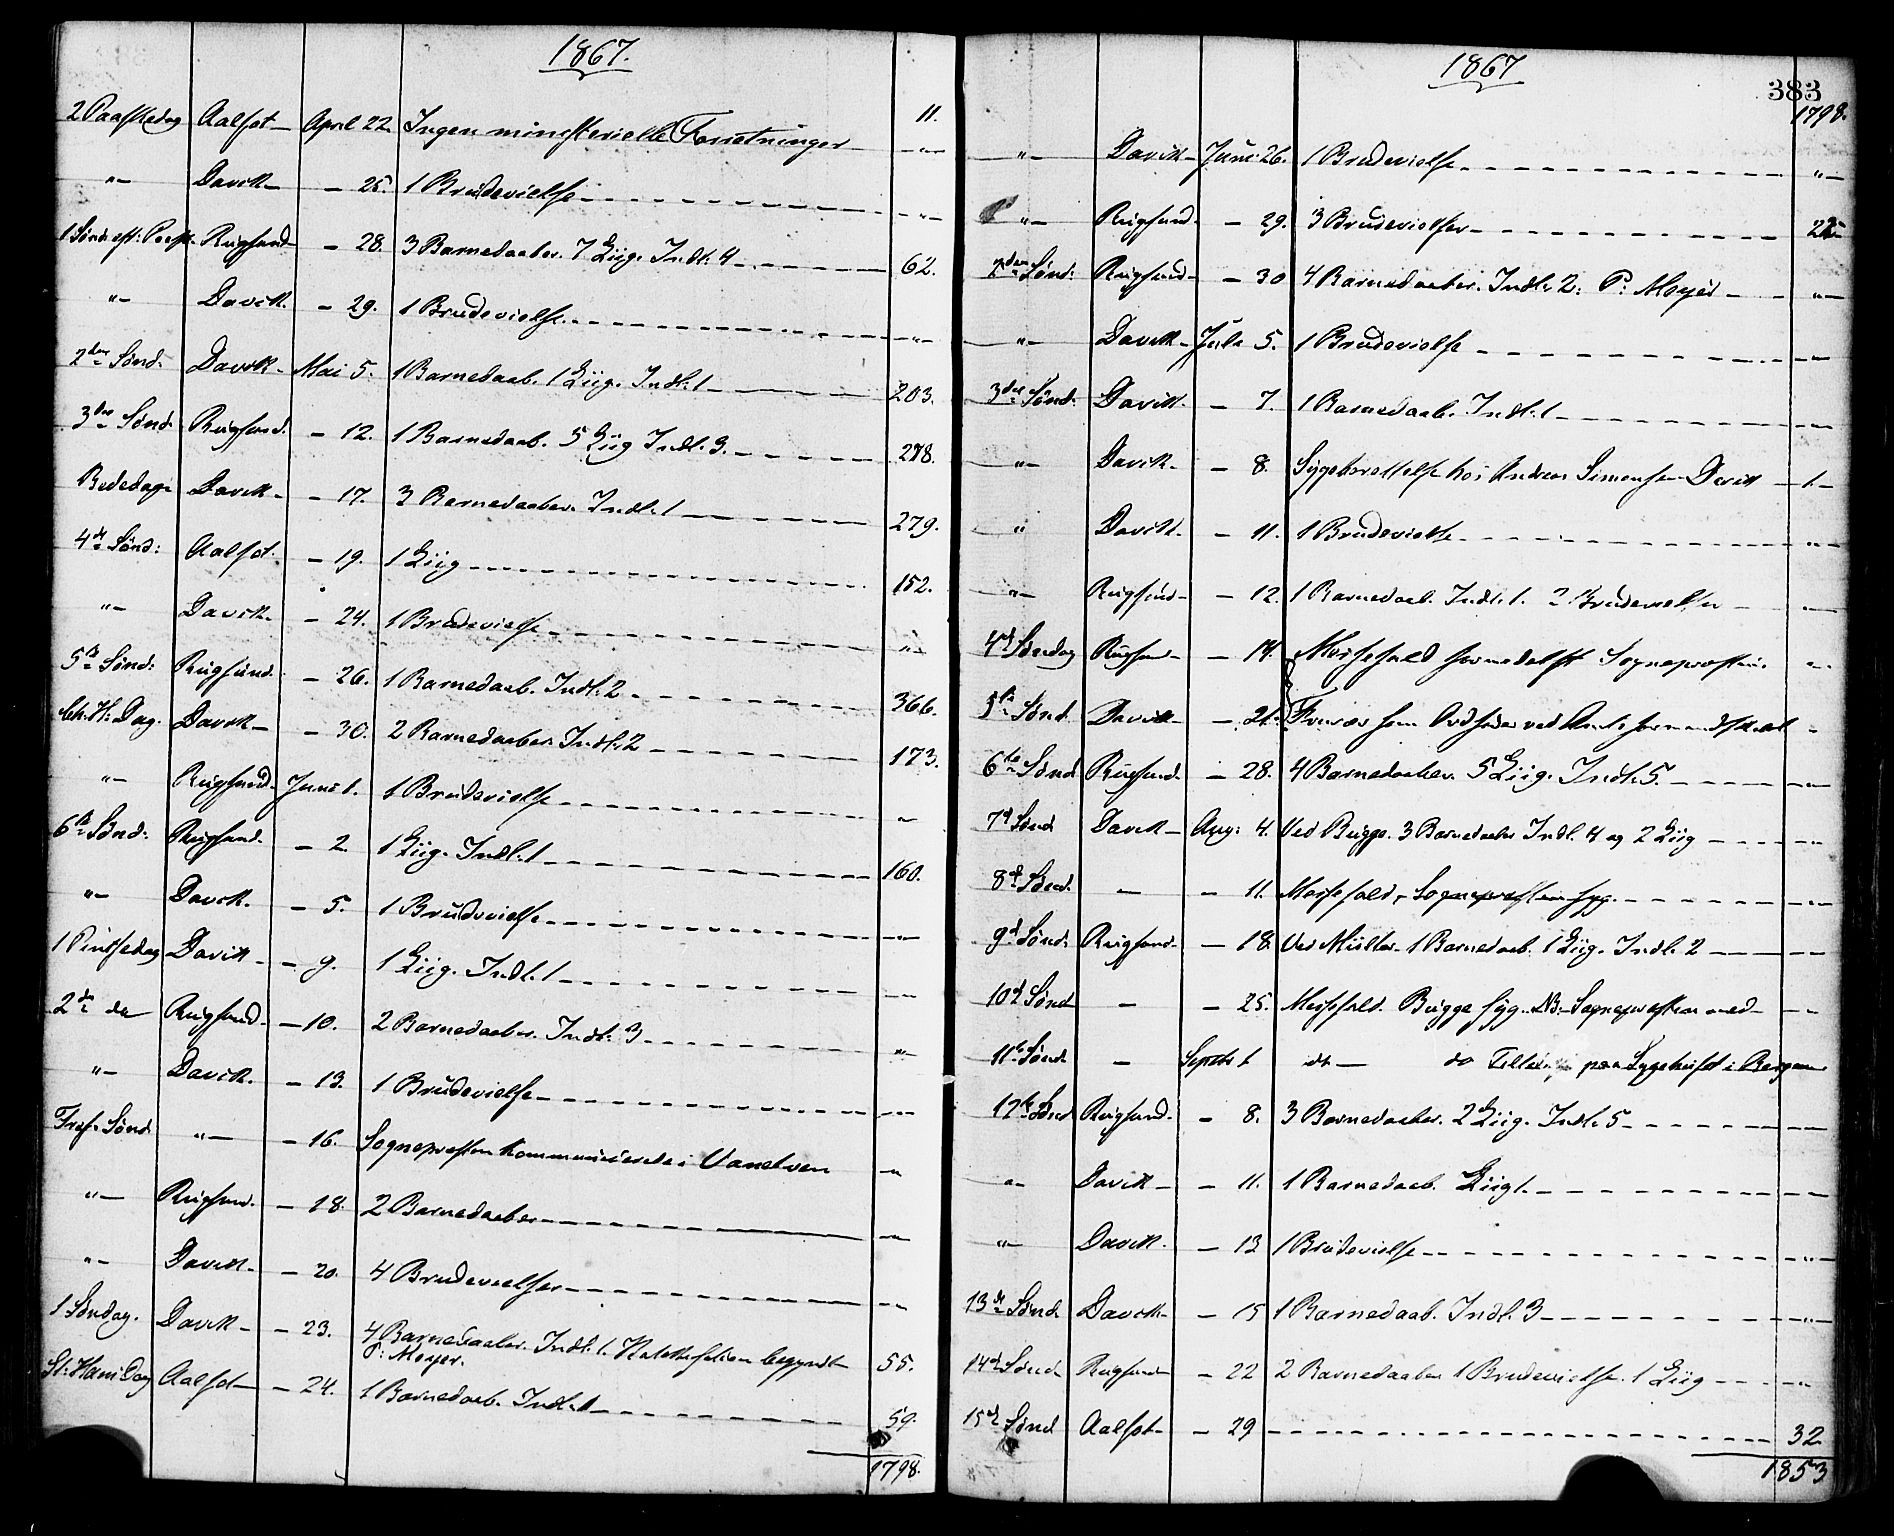 1867.
11.
2 Paaskedag Aalfot April 22. Ingen ministerielle Forretninger „
„ Davik 25. 1 Brudevielse „
1 Sønd. eft: Paask. Rugsund 28. 3 Barnedaaber. 7 Liig. Indl: 4 62.
„ Davik. 29. 1 Brudevielse „
2den Sønd. Davik Mai 5. 1 Barnedaab. 1 Liig. Indl: 1 203.
3die Sønd. Rugsund. 12. 1 Barnedaab. 5 Liig Indl. 3. 278.
Bededag Davik 17. 3 Barnedaaber. Indl. 1 279.
4de Sønd: Aalfot. 19. 1 Liig 152.
„ Davik. 24. 1 Brudevielse „
5te Sønd: Rugsund. 26. 1 Barnedaab. Indl: 2 366.
Ch. H: Dag. Davik 30. 2 Barnedaaber. Indl: 2 173.
„ Rugsund. Juni 1. 1 Brudevielse „
6te Sønd: Rugsund. 2. 1 Liig. Indl. 1 160.
„ Davik. 5. 1 Brudevielse „
1 Pintsedag Davik 9. 1 Liig. Indl. 1 „
2den do Rugsund. 10. 2 Barnedaaber. Indl. 3 „
„ Davik. 13. 1 Brudevielse „
Tref. Sønd. „ 16. Sognepresten kommunicerede i Vanelven „
„ Rugsund. 18. 2 Barnedaaber „
„ Davik. 20. 4 Brudevielser „
1 Søndag. Davik 23. 4 Barnedaaber. Indl: 1. Katekisation begyndt 55.
P: Meyer.
St: Hans Dag Aalfot 24. 1 Barnedaab. Indl. 1 59.
1798.
1867
383
1798.
„ Davik Juni 26. 1 Brudevielse „
„ Rugsund. 29. 3 Brudevielser 22
2den Sønd: Rugsund 30 4 Barnedaaber. Indl. 2: P: Meyer „
„ Davik Juli 5. 1 Brudevielse „
3die Sønd. Davik. 7. 1 Barnedaab. Indl. 1 „
„ Davik. 8. Sygeberettelse hos Andreas Simonsen Davik 1.
„ Davik. 11. 1 Brudevielse „
„ Rugsund 12. 1 Barnedaab. Indl. 1. 2 Brudevielser „
4de Søndag Rugsund 14. Messefald formedelst Sogneprestens „
5te Sønd. Davik 21. Fravær som Ordfører ved Amtsformandskab
6te Sønd Rugsund. 28. 4 Barnedaaber. 5 Liig. Indl. 5. „
7de Sønd Davik Aug: 4. Ved Bugge. 3 Barnedaaber Indl. 4 og 2 Liig „
8de Sønd. „ 11. Messefald, Sognepresten syg. „
9de Sønd: Rugsund. 18. Ved Müller. 1 Barnedaab. 1 Liig. Indl. 2 „
10de Sønd „ 25. Messefald. Bugge syg. NB. Sognepresten med
11te Sønd. „ Septbr 1 do do paa Sygehuset i Bergen
12te Sønd Rugsund. 8. 3 Barnedaaber. 2 Liig. Indl. 5
„ Davik 11. 1 Barnedaab. Liig 1.
„ Davik. 13 1 Brudevielse „
13de Sønd. Davik 15 1 Barnedaab. Indl. 3 „
14de Sønd. Rugsund 22 2 Barnedaaber 1 Brudevielse. 1 Liig „
15de Sønd Aalfot 29 32
1853